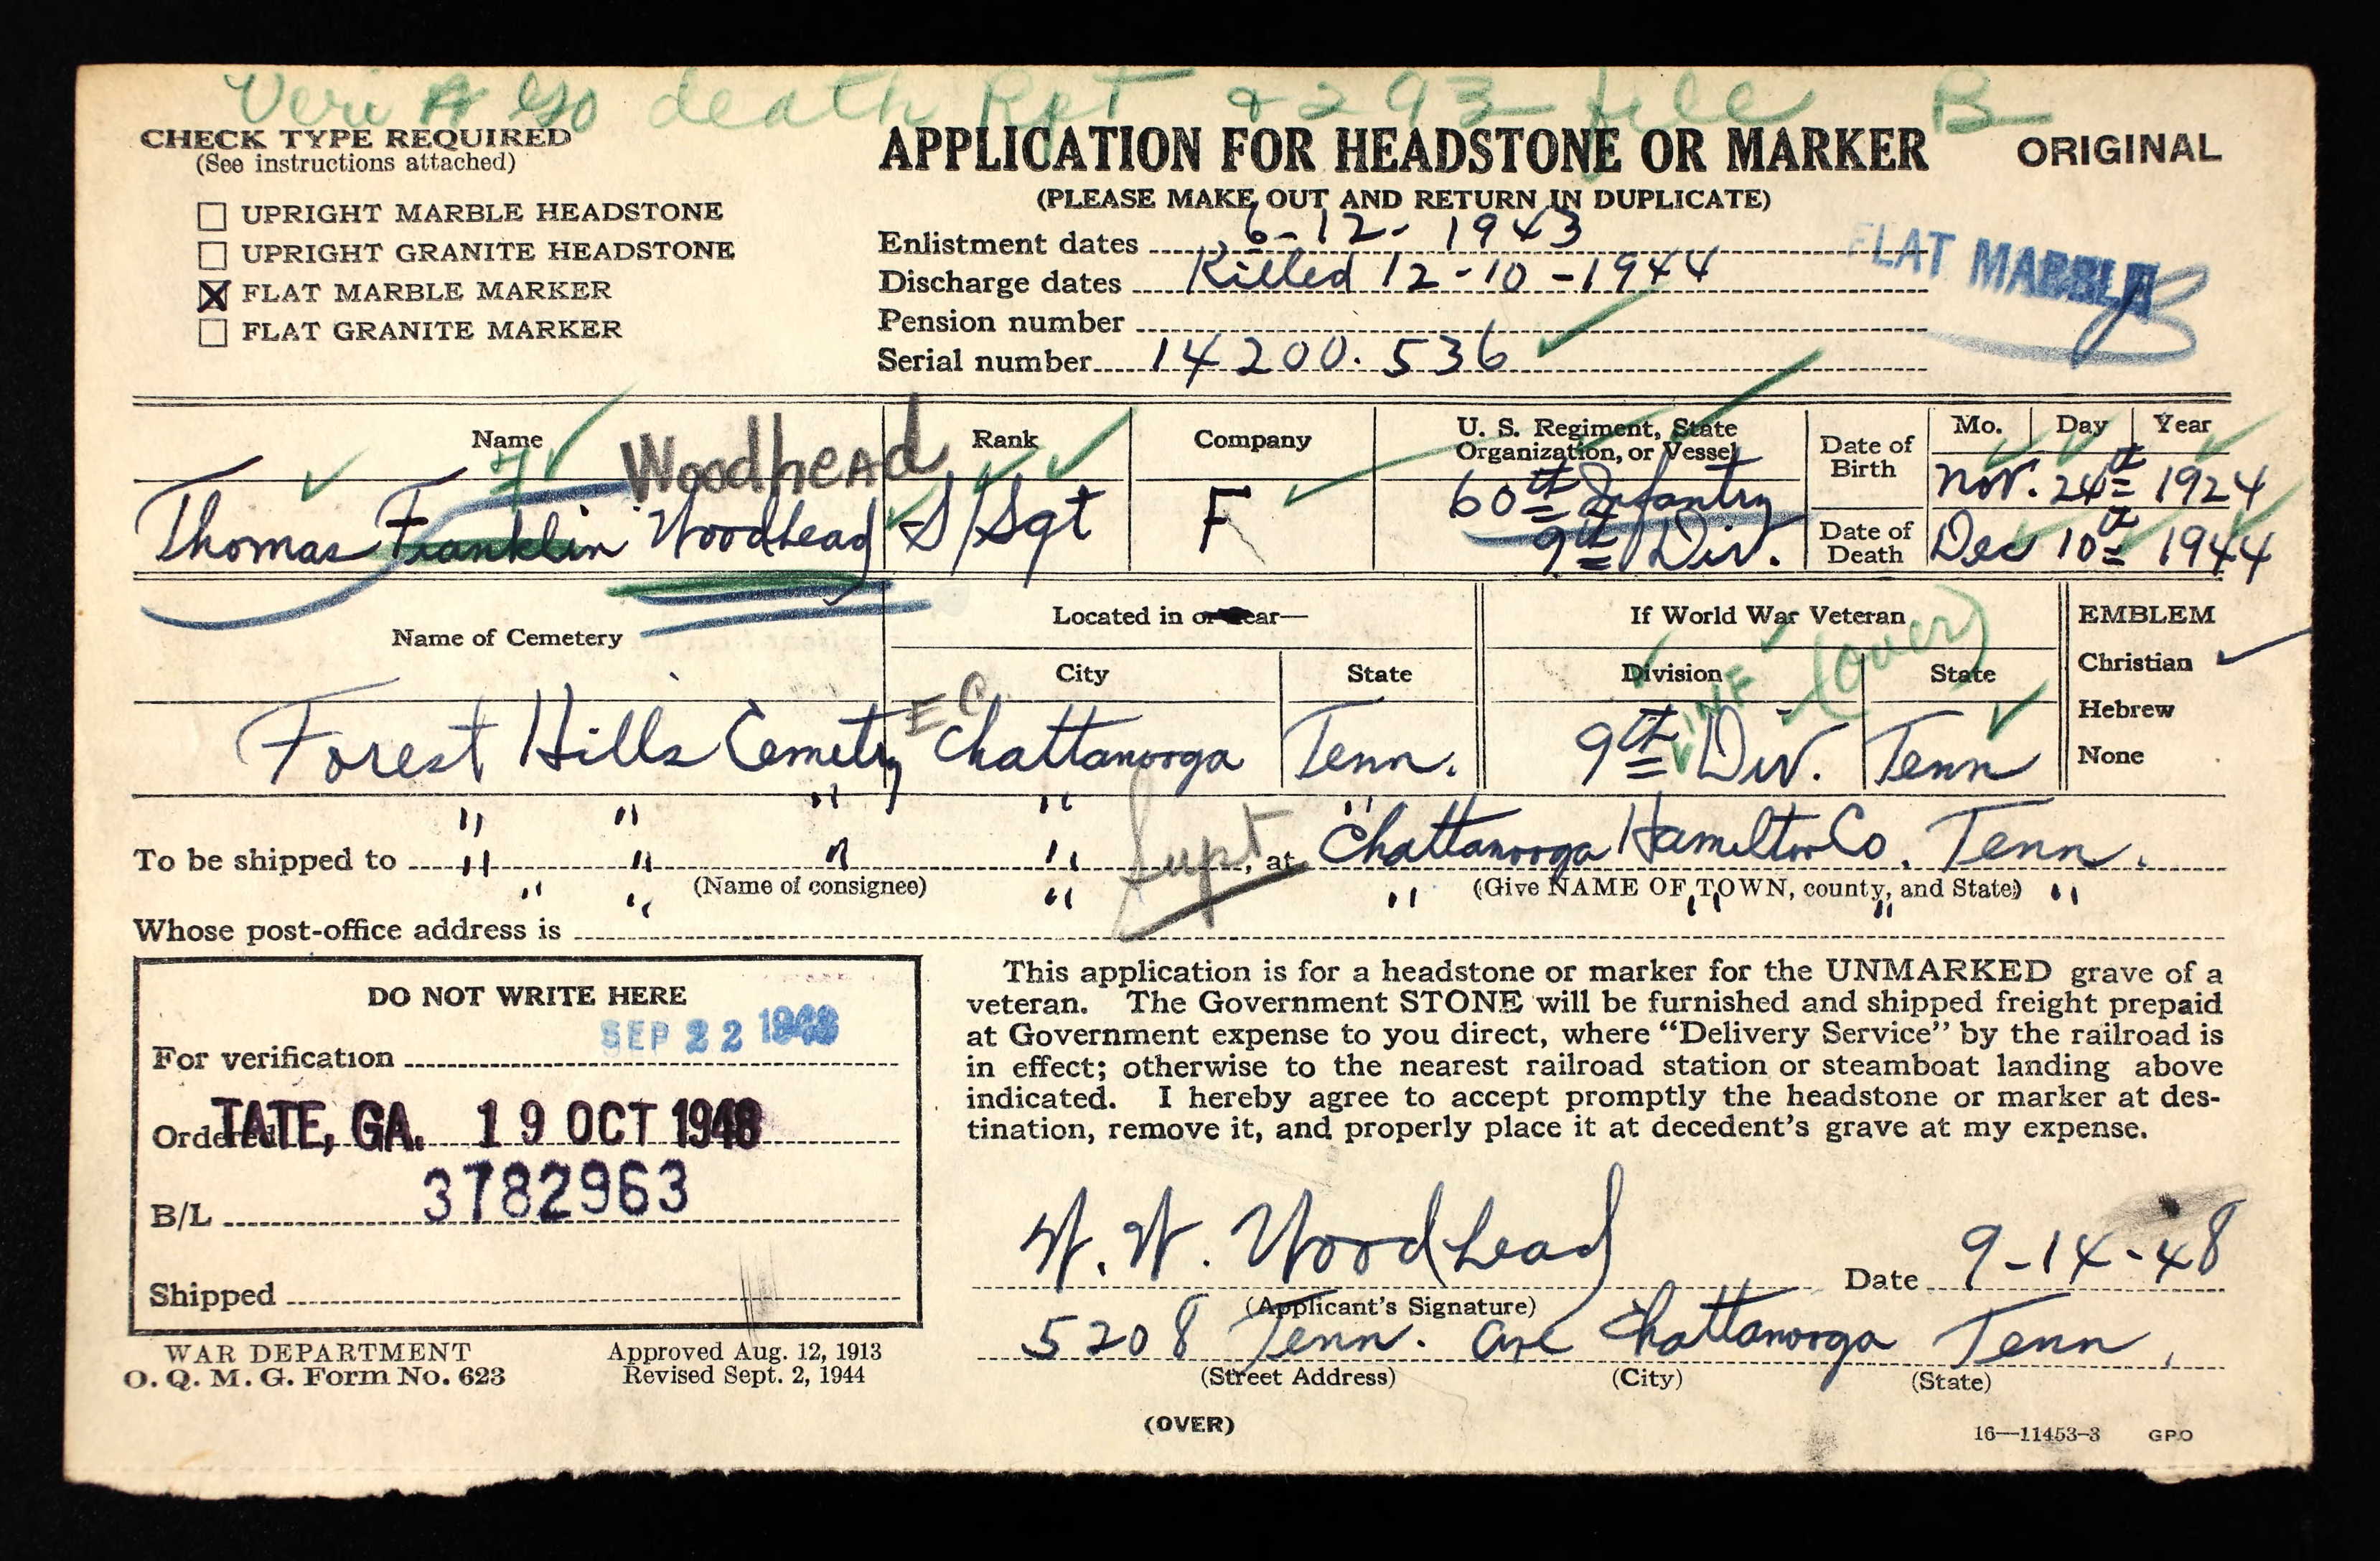 Veri A Go death Rpt & 293 file B
CHECK TYPE REQUIRED
(See instructions attached)
UPRIGHT MARBLE HEADSTONE
UPRIGHT GRANITE HEADSTONE
X FLAT MARBLE MARKER
FLAT GRANITE MARKER
APPLICATION FOR HEADSTONE OR MARKER
ORIGINAL
(PLEASE MAKE OUT AND RETURN IN DUPLICATE)
Enlistment dates 6-12-1943
Discharge dates Killed 12-10-1944
Pension number
Serial number 14200.536
FLAT MARBLE
Name Rank Company U. S. Regiment, State Organization, or Vessel
Woodhead
Thomas Franklin Woodhead S/Sgt F 60th Infantry 9th Div.
Mo. Day Year
Date of Birth Nov. 24th 1924
Date of Death Dec 10th 1944
Name of Cemetery
Located in or near—
City State
If World War Veteran
Division State
(over)
INF
EMBLEM
Christian ✓
Hebrew
None
E C
Forest Hills Cemetry Chattanooga Tenn. 9th Div. Tenn
" " " " "
To be shipped to " " " " Supt, at Chattanooga Hamilton Co. Tenn.
(Name of consignee) (Give NAME OF TOWN, county, and State)
" " " " " " "
Whose post-office address is
DO NOT WRITE HERE
For verification SEP 22 1948
Ordered TATE, GA. 19 OCT 1948
B/L 3782963
Shipped
This application is for a headstone or marker for the UNMARKED grave of a
veteran. The Government STONE will be furnished and shipped freight prepaid
at Government expense to you direct, where “Delivery Service” by the railroad is
in effect; otherwise to the nearest railroad station or steamboat landing above
indicated. I hereby agree to accept promptly the headstone or marker at des-
tination, remove it, and properly place it at decedent's grave at my expense.
W. W. Woodhead Date 9-14-48
(Applicant's Signature)
5208 Tenn. Ave Chattanooga Tenn.
(Street Address) (City) (State)
WAR DEPARTMENT
O. Q. M. G. Form No. 623
Approved Aug. 12, 1913
Revised Sept. 2, 1944
(OVER)
16—11453-3 GPO